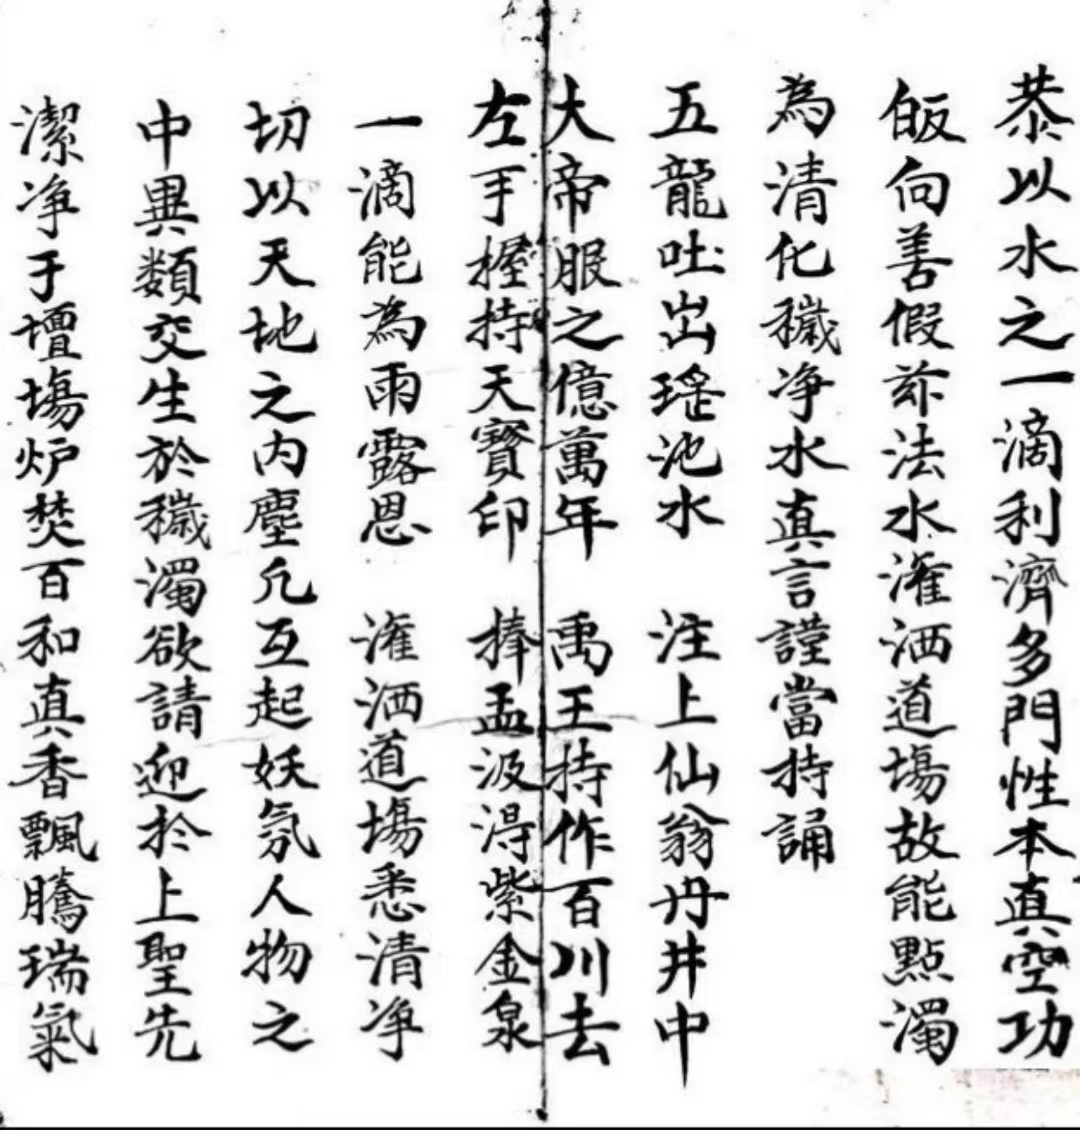 恭以水之一滴利濟多門性本真空功
皈向善假茲法水潅洒道塲故能點濁
為清化穢净水真言謹當持誦
五龍吐出瑤池水 注上仙翁丹井中
大帝服之億萬年 禹王持作百川去
左手握持天寳印 捧盂汲淂紫金泉
一滴能為雨露恩 潅洒道塲悉清净
切以天地之内塵凢互起妖氛人物之
中異類交生於穢濁欲請迎於上聖先
潔净于壇塲炉焚百和真香飄騰瑞氣